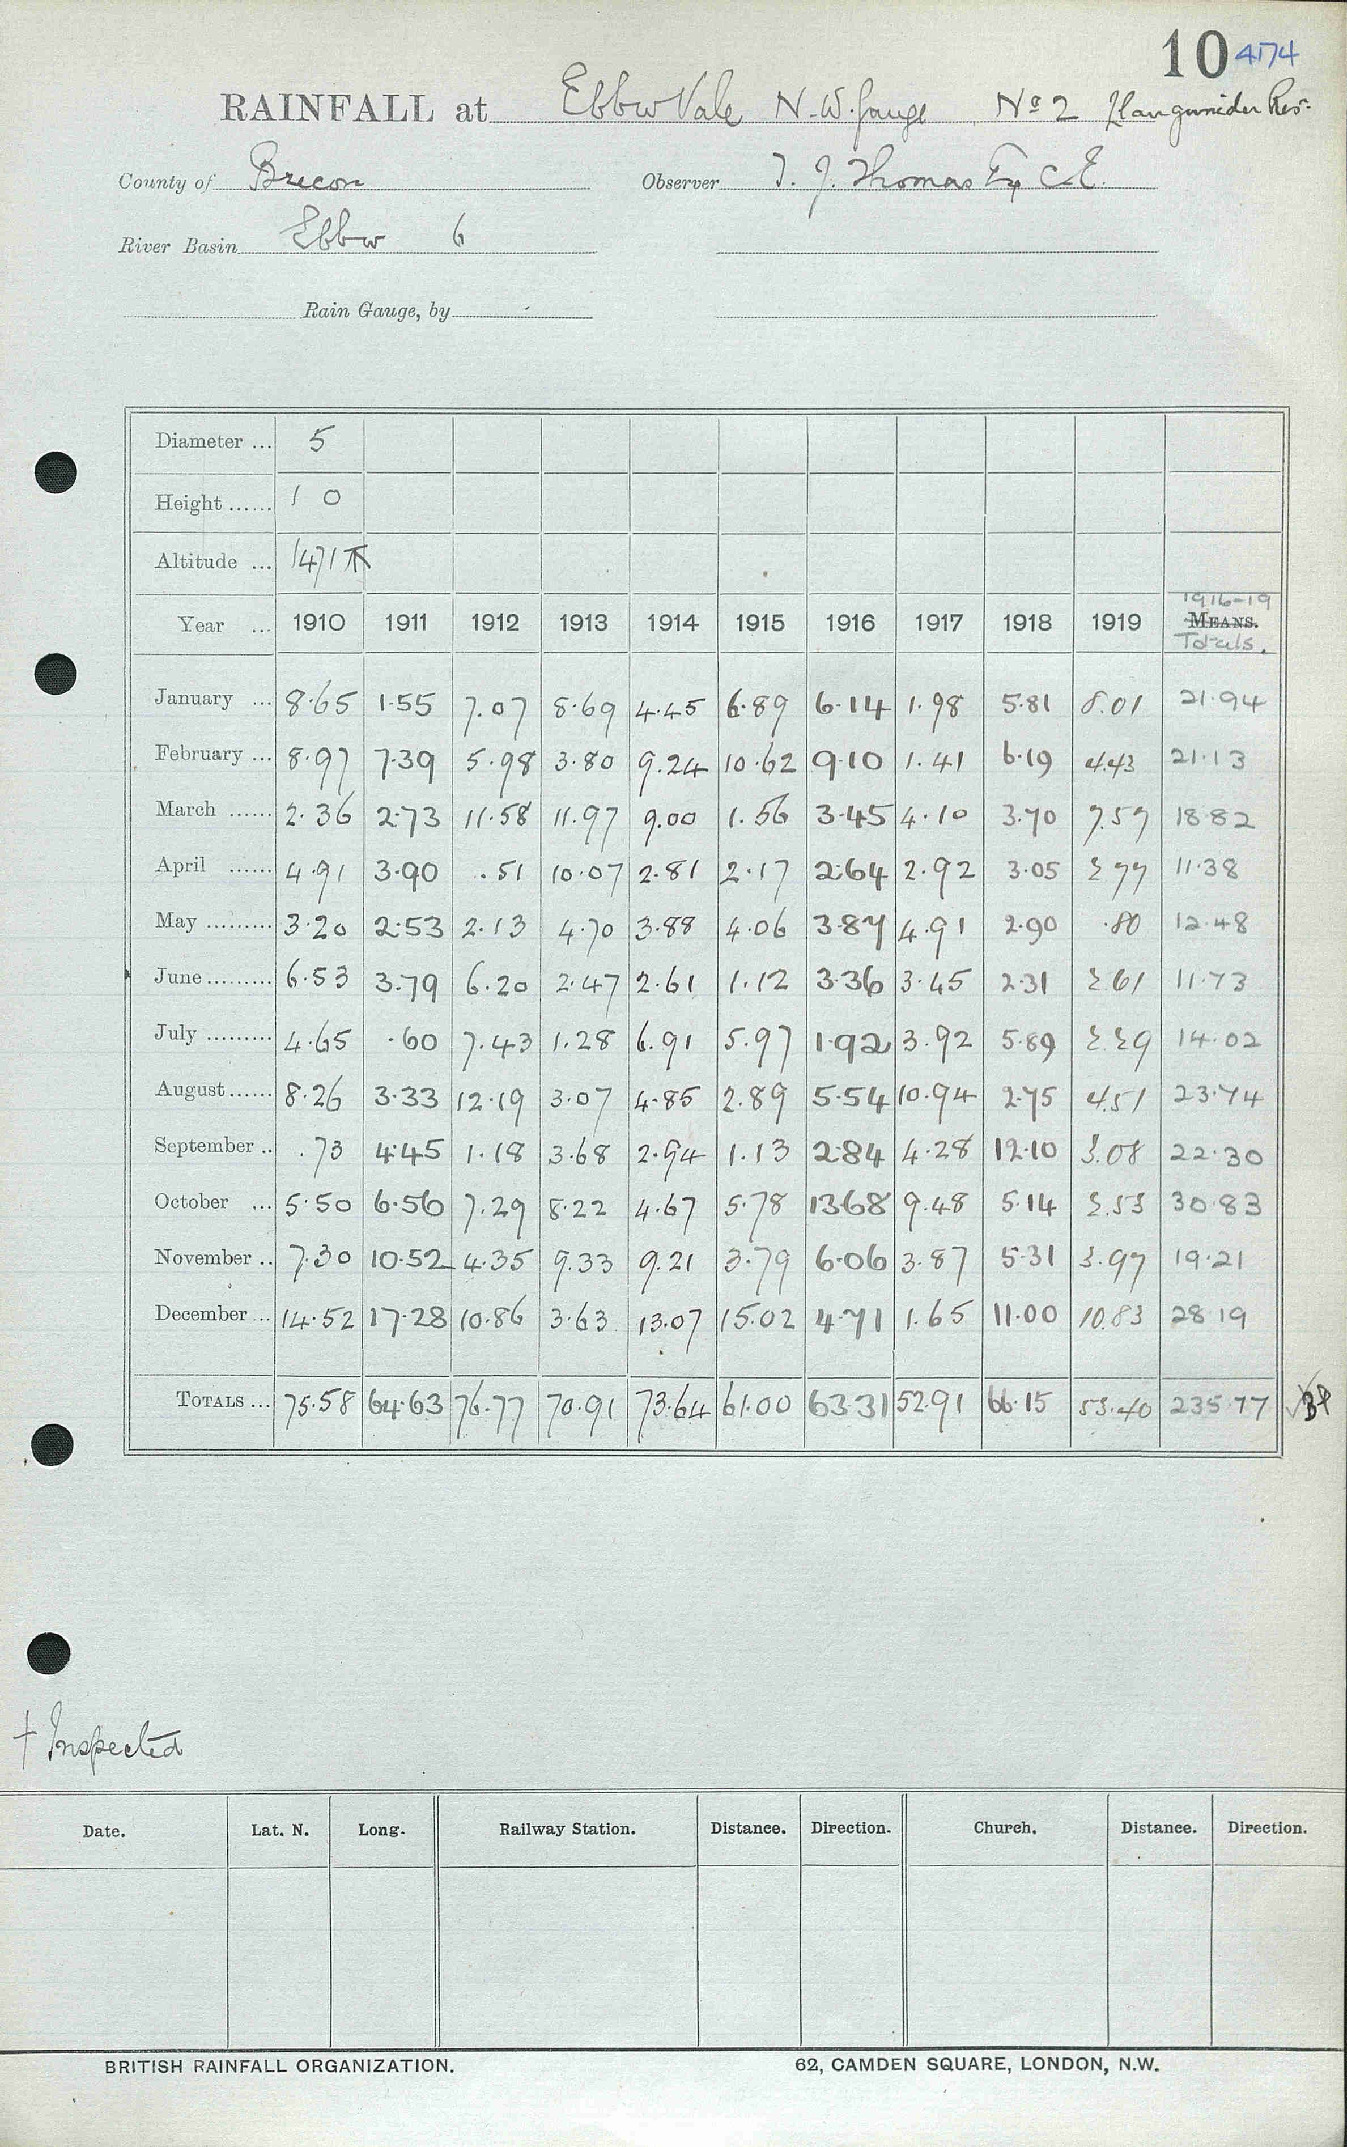 10 4174
RAINFALL at Ebbw Vale N.W. Gauge No 2 Llangunider Res.
County of Brecon Observer T. J. Thomas Esq C.E.
River Basin Ebbw 6
Rain Gauge, by
Diameter ... 5
Height ...... 1 0
Altitude ... 1471 ft
1916-19
Year ... 1910 1911 1912 1913 1914 1915 1916 1917 1918 1919 MEANS.
Totals.
January ... 8.65 1.55 7.07 8.69 4.45 6.89 6.14 1.98 5.81 8.01 21.94
February ... 8.97 7.39 5.98 3.80 9.24 10.62 9.10 1.41 6.19 4.43 21.13
March ...... 2.36 2.73 11.58 11.97 9.00 1.56 3.45 4.10 3.70 7.57 18.82
April ...... 4.91 3.90 .51 10.07 2.81 2.17 2.64 2.92 3.05 2.77 11.38
May ......... 3.20 2.53 2.13 4.70 3.88 4.06 3.87 4.91 2.90 .80 12.48
June ......... 6.53 3.79 6.20 2.47 2.61 1.12 3.36 3.45 2.31 2.61 11.73
July ......... 4.65 .60 7.43 1.28 6.91 5.97 1.92 3.92 5.89 2.29 14.02
August ...... 8.26 3.33 12.19 3.07 4.85 2.89 5.54 10.94 2.75 4.51 23.74
September .. .73 4.45 1.18 3.68 2.94 1.13 2.84 4.28 12.10 3.08 22.30
October ... 5.50 6.56 7.29 8.22 4.67 5.78 13.68 9.48 5.14 2.53 30.83
November .. 7.30 10.52 4.35 9.33 9.21 3.79 6.06 3.87 5.31 3.97 19.21
December ... 14.52 17.28 10.86 3.63 13.07 15.02 4.71 1.65 11.00 10.83 28.19
TOTALS ... 75.58 64.63 76.77 70.91 73.64 61.00 63.31 52.91 66.15 53.40 235.77
† Inspected
Date. Lat. N. Long. Railway Station. Distance. Direction. Church. Distance. Direction.
BRITISH RAINFALL ORGANIZATION. 62, CAMDEN SQUARE, LONDON, N.W.